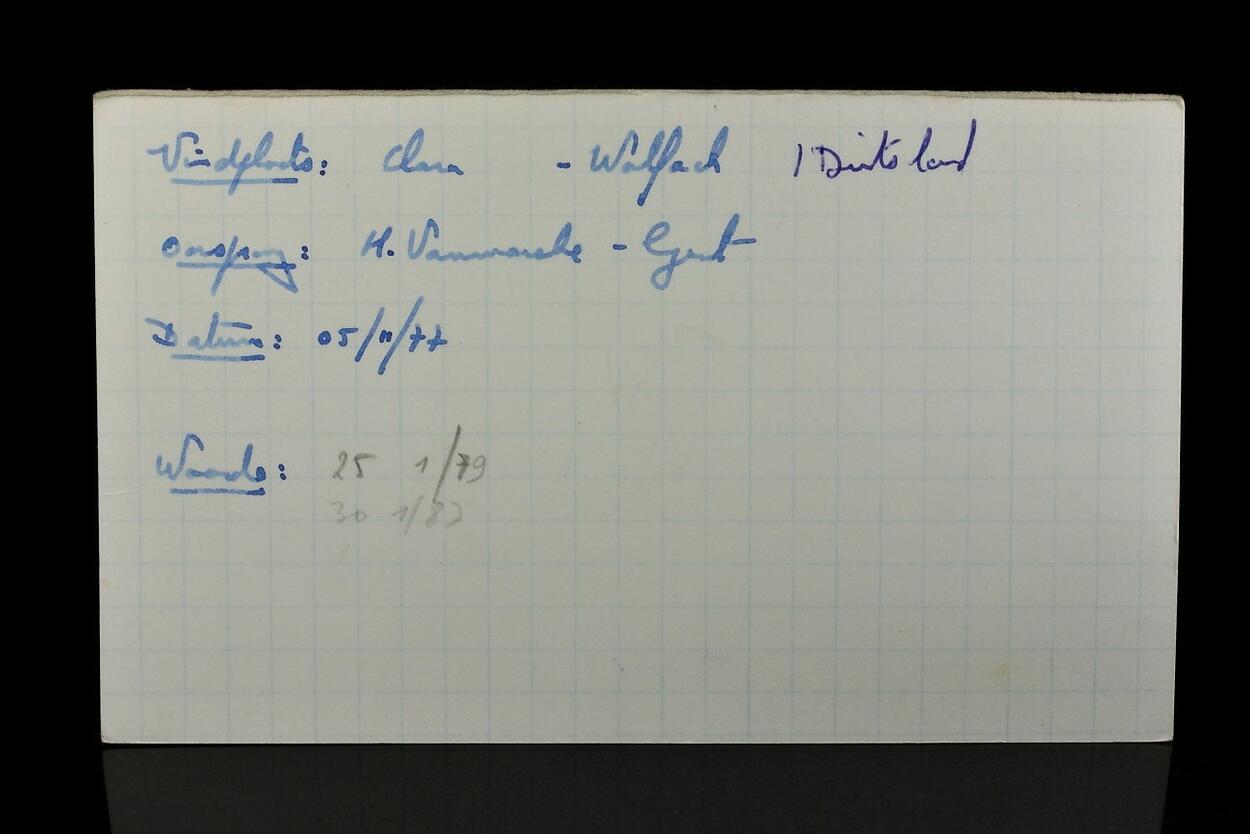 Vindplaats: Clara - Wolfach / Duitsland
Oorsprong: H. - Gent
Datum: 05/11/77
Waarde: 25 1/79
30 1/82